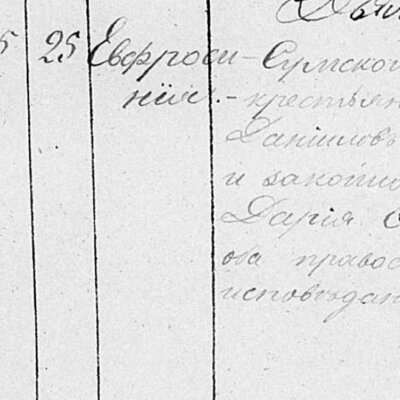 Дья
5 25 Евфроси- Сумской
нія. - крестьян
Даниловъ
и законно
Дарія С
оба правос
исповѣдан